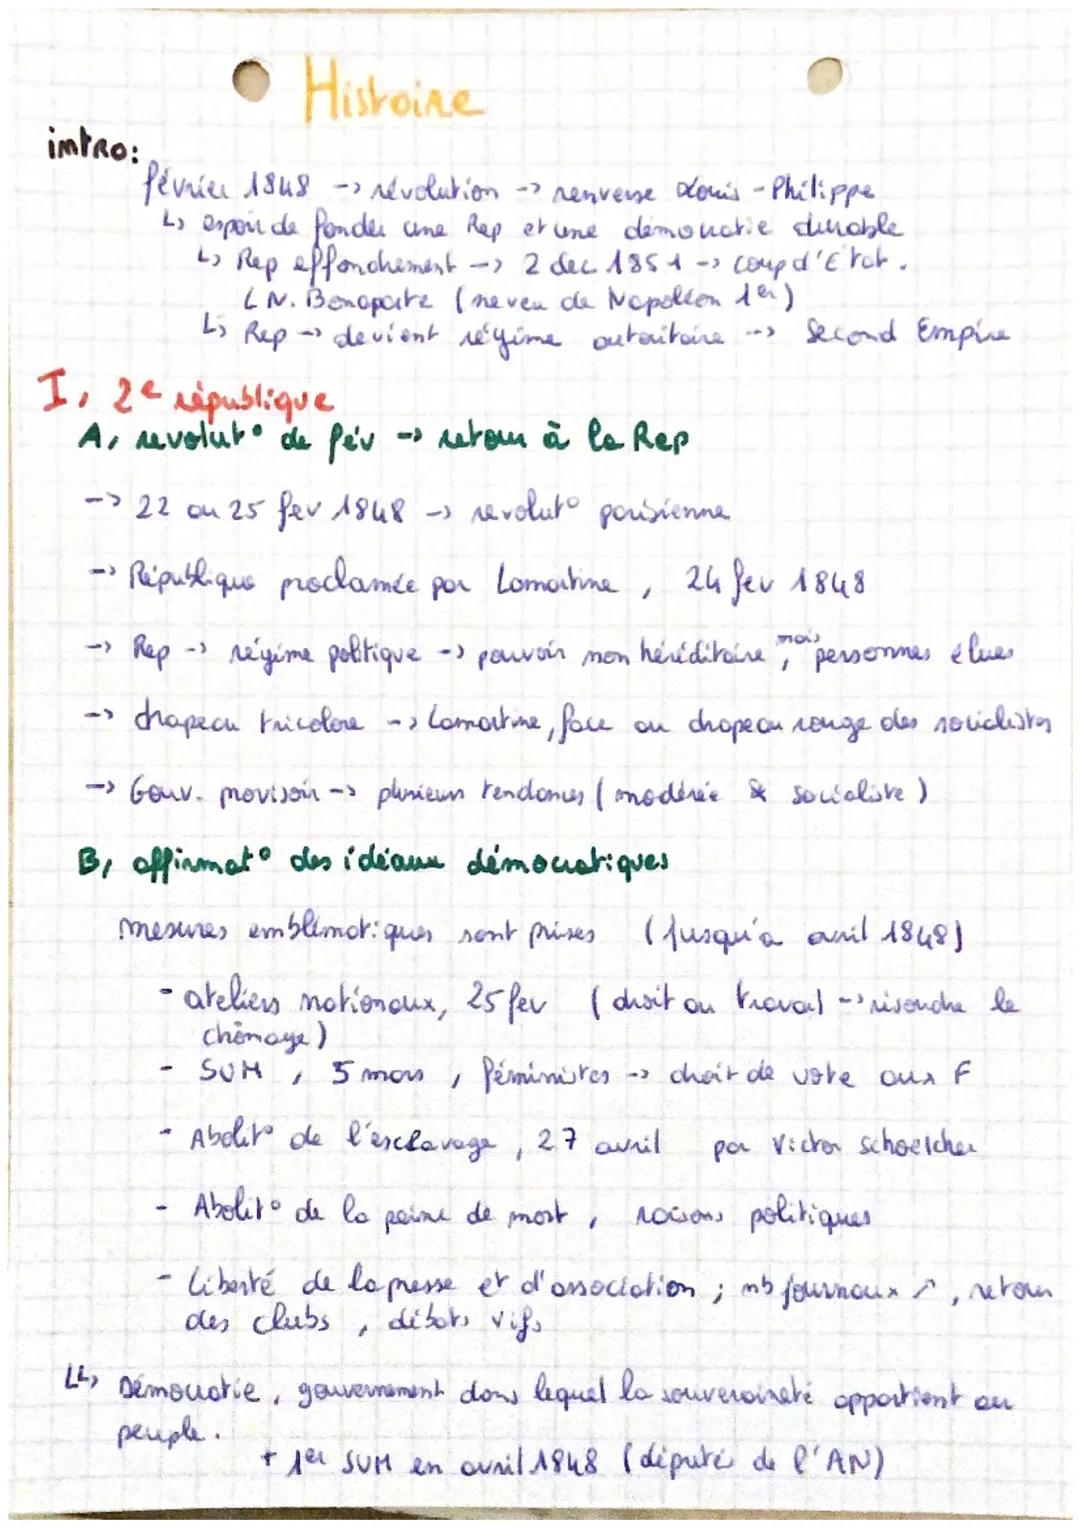 Histoire
intro:
février 1848 -> révolution -> renverse Louis-Philippe
↳ espoir de fonder une Rep et une démocratie durable
↳ Rep effondrement -> 2 dec 1851 -> coup d'Etat.
LN. Bonaparte (neveu de Napoléon 1er)
↳ Rep -> devient régime autoritaire -> Second Empire
I, 2e république
A, revolut° de fév -> retour à la Rep
-> 22 au 25 fev 1848 -> revolut° parisienne
-> République proclamée par Lamartine, 24 fev 1848
-> Rep -> régime politique -> pouvoir non héréditaire, mais personnes élues
-> drapeau tricolore -> Lamartine, face au drapeau rouge des socialistes
-> Gouv. provisoir -> plusieurs tendances (modérée & socialiste)
B, affirmat° des idéaux démocratiques
mesures emblématiques sont prises (jusqu'à avril 1848)
- ateliers nationaux, 25 fev (droit au travail -> résoudre le
chômage)
- SUM, 5 mars, féministes -> droit de vote aux F
- Abolit° de l'esclavage, 27 avril par Victor Schoelcher
- Abolit° de la peine de mort, raisons politiques
- Liberté de la presse et d'association ; nb journaux ↗, retour
des clubs, débats vifs
↳ Démocratie, gouvernement dans lequel la souveraineté appartient au
peuple.
+ 1er SUM en avril 1848 (députés de l'AN)